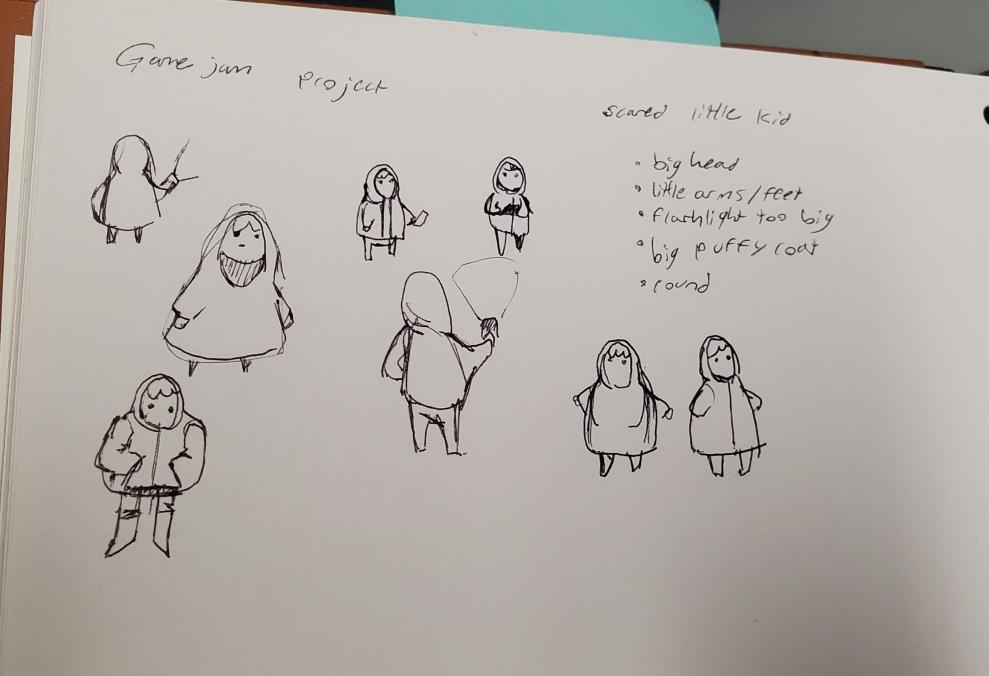 Game jam project
scared little kid
• big head
• little arms/feet
• flashlight too big
• big puffy coat
• round